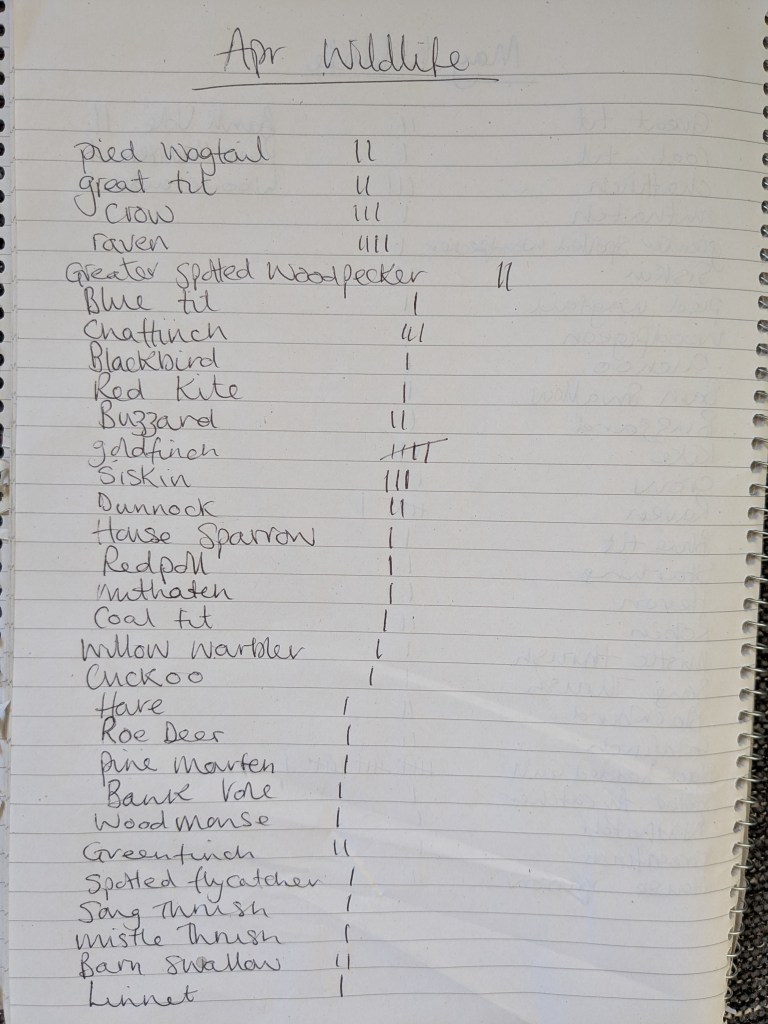 Apr Wildlife
pied wagtail II
great tit II
Crow III
raven IIII
Greater Spotted Woodpecker II
Blue tit I
Chaffinch III
Blackbird I
Red Kite I
Buzzard II
goldfinch IIIII
Siskin III
Dunnock II
House Sparrow I
Redpoll I
nuthatch I
Coal tit I
Willow warbler I
Cuckoo I
Hare I
Roe Deer I
pine marten I
Bank Vole I
Woodmouse I
Greenfinch II
Spotted flycatcher I
Song Thrush I
mistle Thrush I
Barn Swallow II
Linnet I